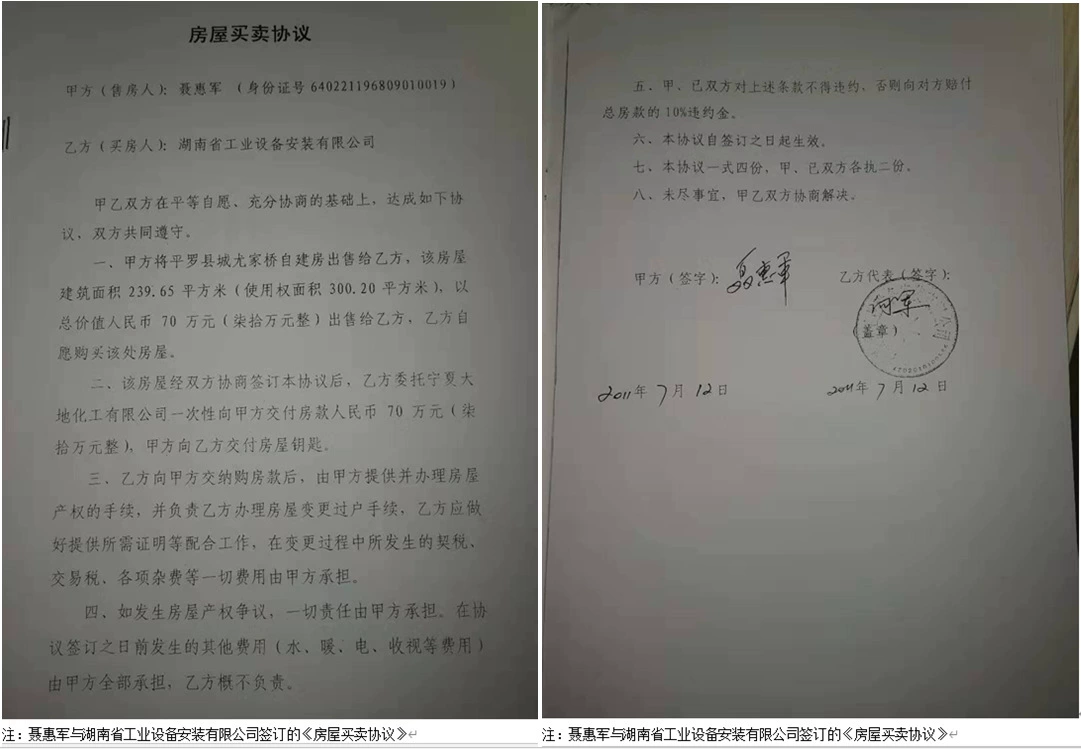 房屋买卖协议
甲方（售房人）：聂惠军 （身份证号 640221196809010019）
乙方（买房人）：湖南省工业设备安装有限公司
甲乙双方在平等自愿、充分协商的基础上，达成如下协
议，双方共同遵守。
一、甲方将平罗县城尤家桥自建房出售给乙方，该房屋
建筑面积 239.65 平方米（使用权面积 300.20 平方米），以
总价值人民币 70 万元（柒拾万元整）出售给乙方，乙方自
愿购买该处房屋。
二、该房屋经双方协商签订本协议后，乙方委托宁夏大
地化工有限公司一次性向甲方交付房款人民币 70 万元（柒
拾万元整），甲方向乙方交付房屋钥匙。
三、乙方向甲方交纳购房款后，由甲方提供并办理房屋
产权的手续，并负责乙方办理房屋变更过户手续，乙方应做
好提供所需证明等配合工作，在变更过程中所发生的契税、
交易税、各项杂费等一切费用由甲方承担。
四、如发生房屋产权争议，一切责任由甲方承担。在协
议签订之日前发生的其他费用（水、暖、电、收视等费用）
由甲方全部承担，乙方概不负责。
注：聂惠军与湖南省工业设备安装有限公司签订的《房屋买卖协议》
五、甲、已双方对上述条款不得违约，否则向对方赔付
总房款的 10%违约金。
六、本协议自签订之日起生效。
七、本协议一式四份，甲、已双方各执二份。
八、未尽事宜，甲乙双方协商解决。
甲方（签字）：聂惠军 乙方代表（签字）：
（盖章）
2011年 7月 12日 2011年 7月 12日
注：聂惠军与湖南省工业设备安装有限公司签订的《房屋买卖协议》